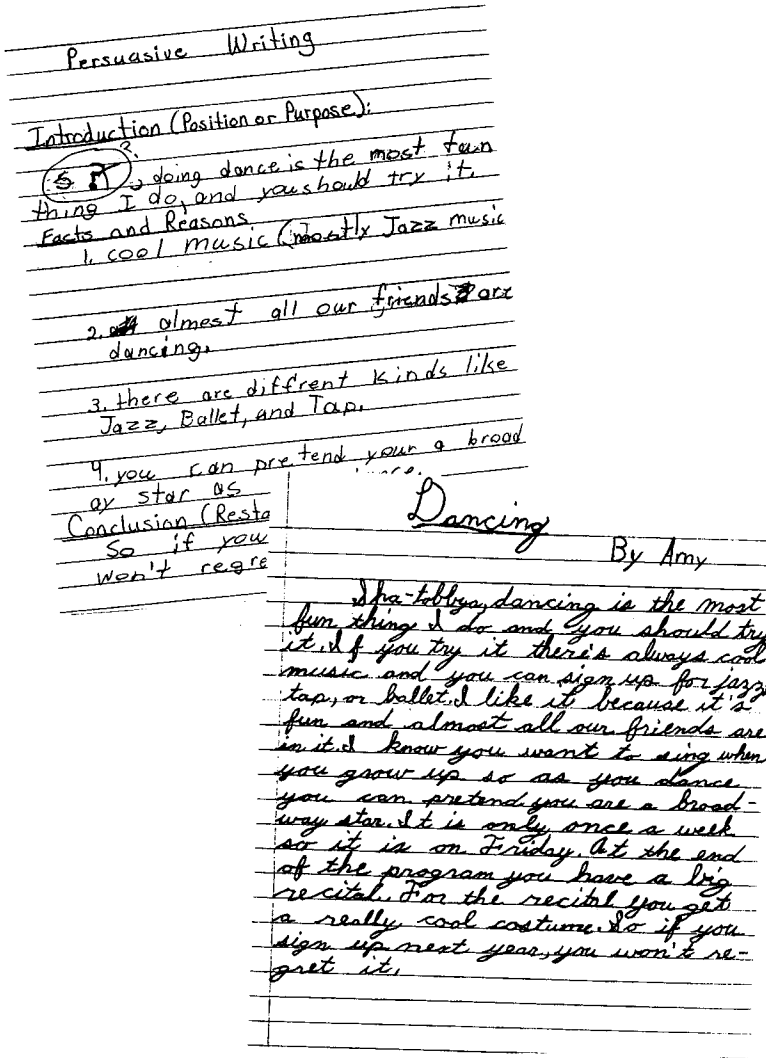 Persuasive Writing
Introduction (Position or Purpose):
?
, doing dance is the most fun
thing I do, and you should try it.
Facts and Reasons
1. cool music (mostly Jazz music
2. almost all our friends are
dancing.
3. there are diffrent kinds like
Jazz, Ballet, and Tap.
4. you can pretend your a broad
ay star as
Conclusion (Resta
So if you
won't regre
Dancing
By Amy
dancing is the most
fun thing I do and you should try
it. If you try it there's always cool
music and you can sign up for jazz,
tap, or ballet. I like it because it's
fun and almost all our friends are
in it. I know you want to sing when
you grow up so as you dance
you can pretend you are a broad-
way star. It is only once a week
so it is on Friday. At the end
of the program you have a big
recital. For the recital you get
a really cool costume. So if you
sign up next year, you won't re-
gret it.